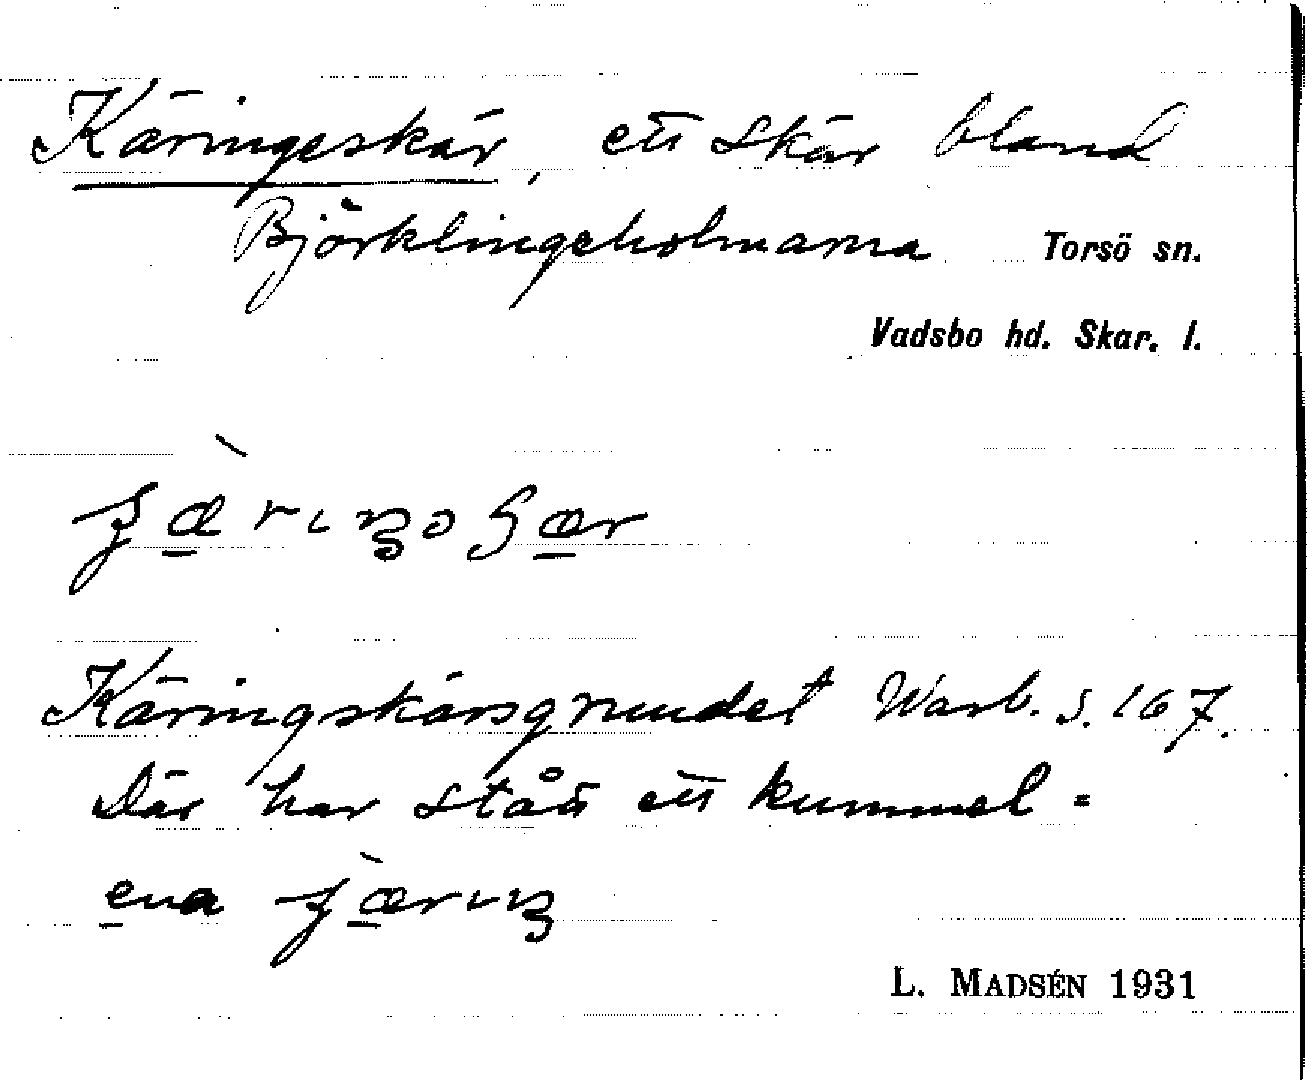 Käringeskär, ett skär bland
Björklingeholmarna Torsö sn.
Vadsbo hd. Skar. l.
Käringskärsgrundet Warb. s. 167.
Där har stått ett kummel =
ena
L. MADSÉN 1931